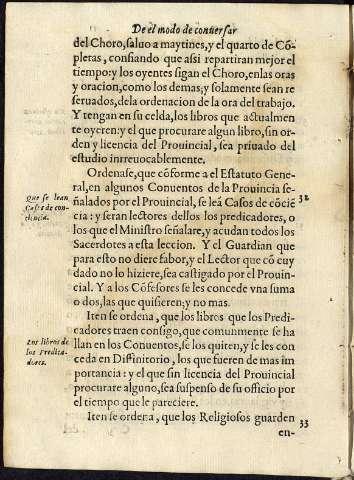 De el modo de conuersar
del Choro, saluo a maytines, y el quarto de Cõ-
pletas, confiando que assi repartiran mejor el
tiempo: y los oyentes sigan el Choro, en las oras
y oracion, como los demas; y solamente sean re
seruados, de la ordenacion de la ora del trabajo.
Y tengan en su celda, los libros que actualmen
te oyeren: y el que procurare algun libro, sin or-
den y licencia del Prouincial, sea priuado del
estudio irreuocablemente.
Ordenase, que cõforme a el Estatuto Gene-
ral, en algunos Conuentos de la Prouincia se-
ñalados por el Prouincial, se leã Casos de cõciē
cia: y seran lectores dellos los predicadores, o
los que el Ministro señalare, y acudan todos los
Sacerdotes a esta leccion. Y el Guardian que
para esto no diere fabor, y el Lector que cõ cuy
dado no lo hiziere, sea castigado por el Prouin-
cial. Y a los Cõfesores se les concede vna suma
o dos, las que quisieren; y no mas.
Que se lean
Casos de con-
ciencia.
32
Iten se ordena, que los libros que los Predi-
cadores traen consigo, que comunmente se ha
llan en los Conuentos, se los quiten, y se les con
ceda en Diffinitorio, los que fueren de mas im
portancia: y el que sin licencia del Prouincial
procurare alguno, sea suspenso de su officio por
el tiempo que le pareciere.
Los libros de
los Predica-
dores.
Iten se ordena, que los Religiosos guarden
33
en-